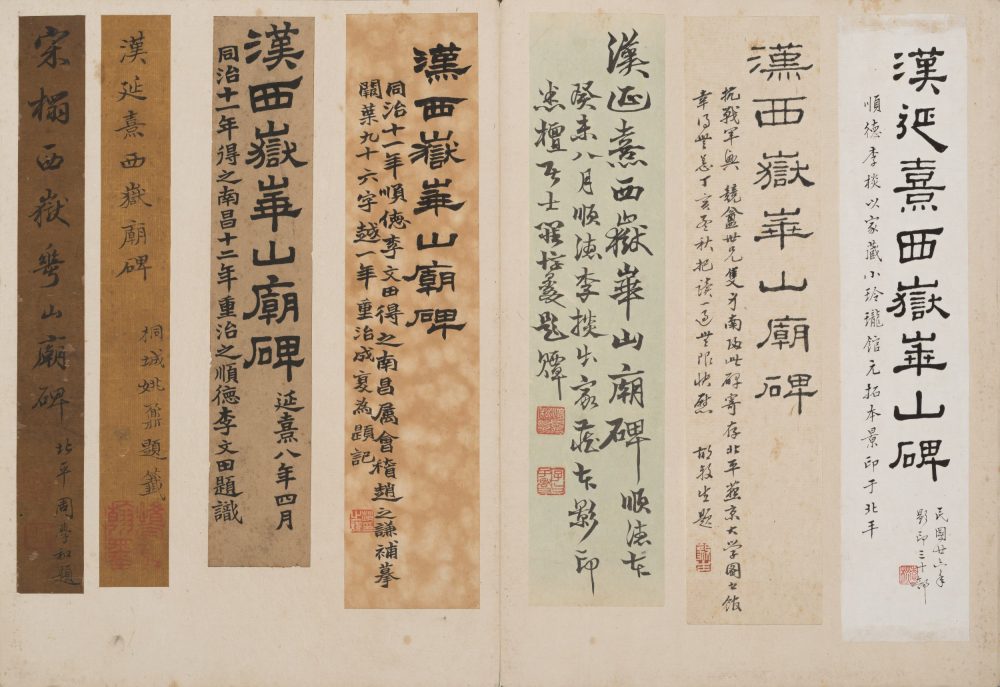 漢延熹西嶽崋山碑
順德李棪以家藏小玲瓏館元拓本景印于北平
民國廿六年
影印三十部
漢西嶽崋山廟碑
抗戰軍興競盦世兄隻身南故此碑寄存北平燕京大學圖書館
幸得無恙丁亥孟秋把讀一過無限快慰
胡毅生題
漢延熹西嶽崋山廟碑
順德本
癸未八月順德李棪出家藏本影印
漢西嶽崋山廟碑
同治十一年順德李文田得之南昌屬會稽趙之謙補摹
闕葉九十六字越一年重治成夏為題記
漢西嶽崋山廟碑
延熹八年四月
同治十一年得之南昌十二年重治之順德李文田題識
漢延熹西嶽廟碑
桐城姚鼐題籤
宋榻西嶽崋山廟碑
北平周學和題